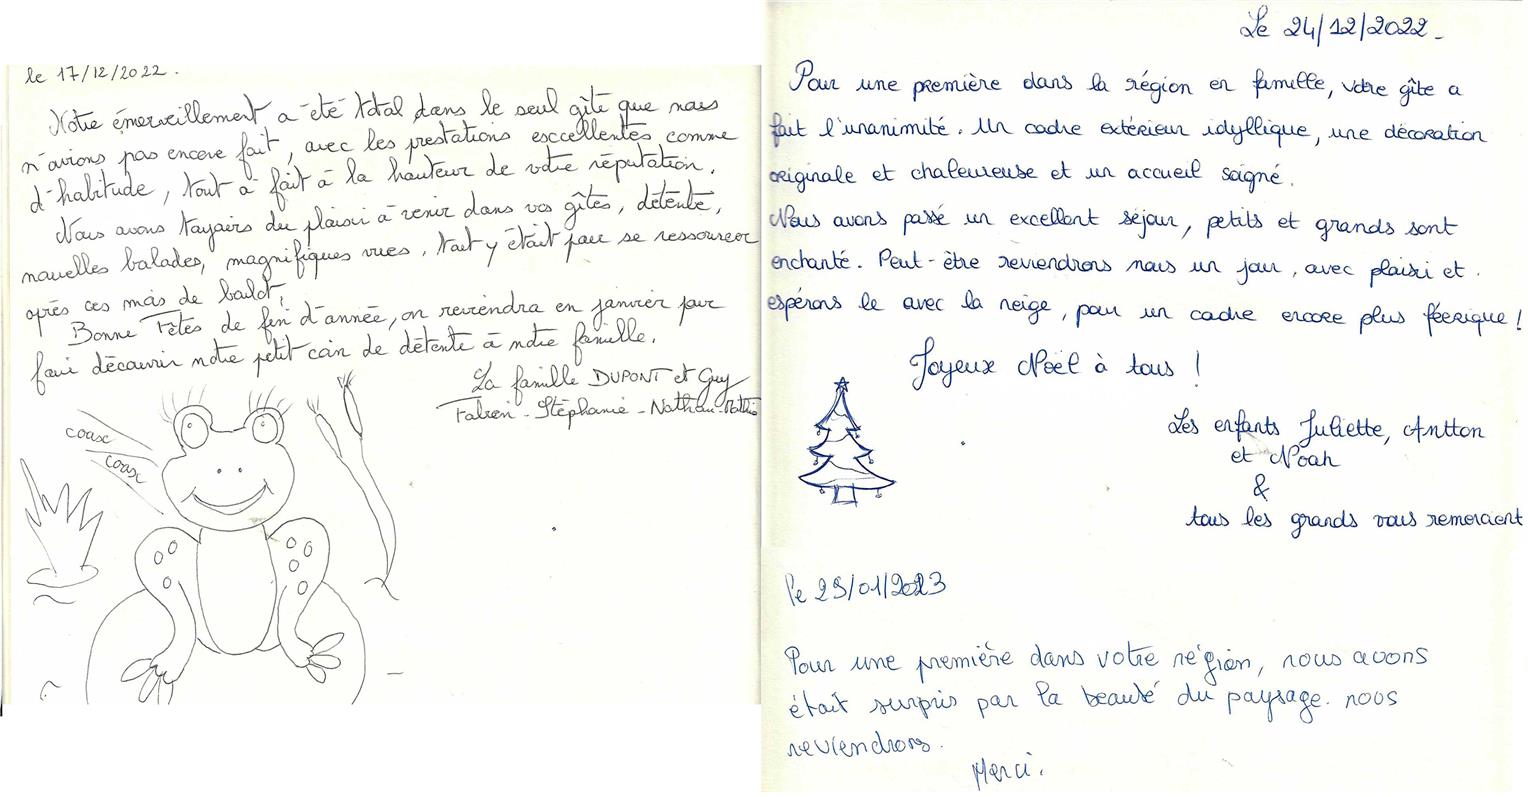 le 17/12/2022.
Notre émerveillement a été total dans le seul gîte que nous
n'avions pas encore fait, avec les prestations escellentes comme
d'habitude, tout à fait à la hauteur de votre réputation.
Nous avons toujours du plaisir à venir dans vos gîtes, détente,
nouvelles balades, magnifiques vues, tout y était pour se ressourcer
après ces mois de boulot!
Bonne Fêtes de fin d'année, on reviendra en janvier pour
faire découvrir notre petit coin de détente à notre famille.
La famille DUPONT et Guy
Fabien - Stéphanie - Nathan -
coasc
coasc
Le 24/12/2022-
Pour une première dans la région en famille, votre gîte a
fait l'unanimité. Un cadre extérieur idyllique, une décoration
originale et chaleureuse et un accueil soigné.
Nous avons passé un excellent séjour, petits et grands sont
enchanté. Peut-être reviendrons nous un jour, avec plaisir et
espérons le avec la neige, pour un cadre encore plus féerique!
Joyeux Noël à tous!
Les enfants Juliette, Antton
et Noah
&
tous les grands vous remercient
le 29/01/2023
Pour une première dans votre région, nous avons
était surpris par la beauté du paysage. nous
reviendrons.
Merci.